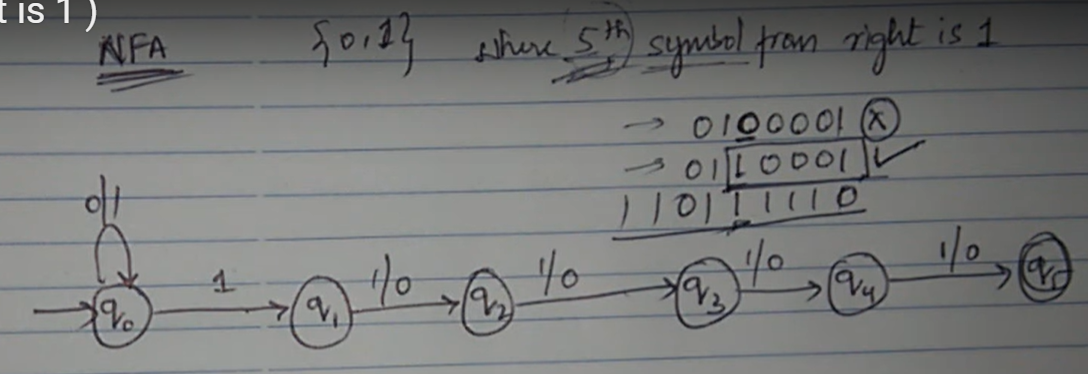 t is 1 )
NFA {0,1} where 5th symbol from right is 1
→ 0100001 ×
→ 0110001 ✓
110111110
0/1
1 1/0 1/0 1/0 1/0
q0 q1 q2 q3 q4 q5